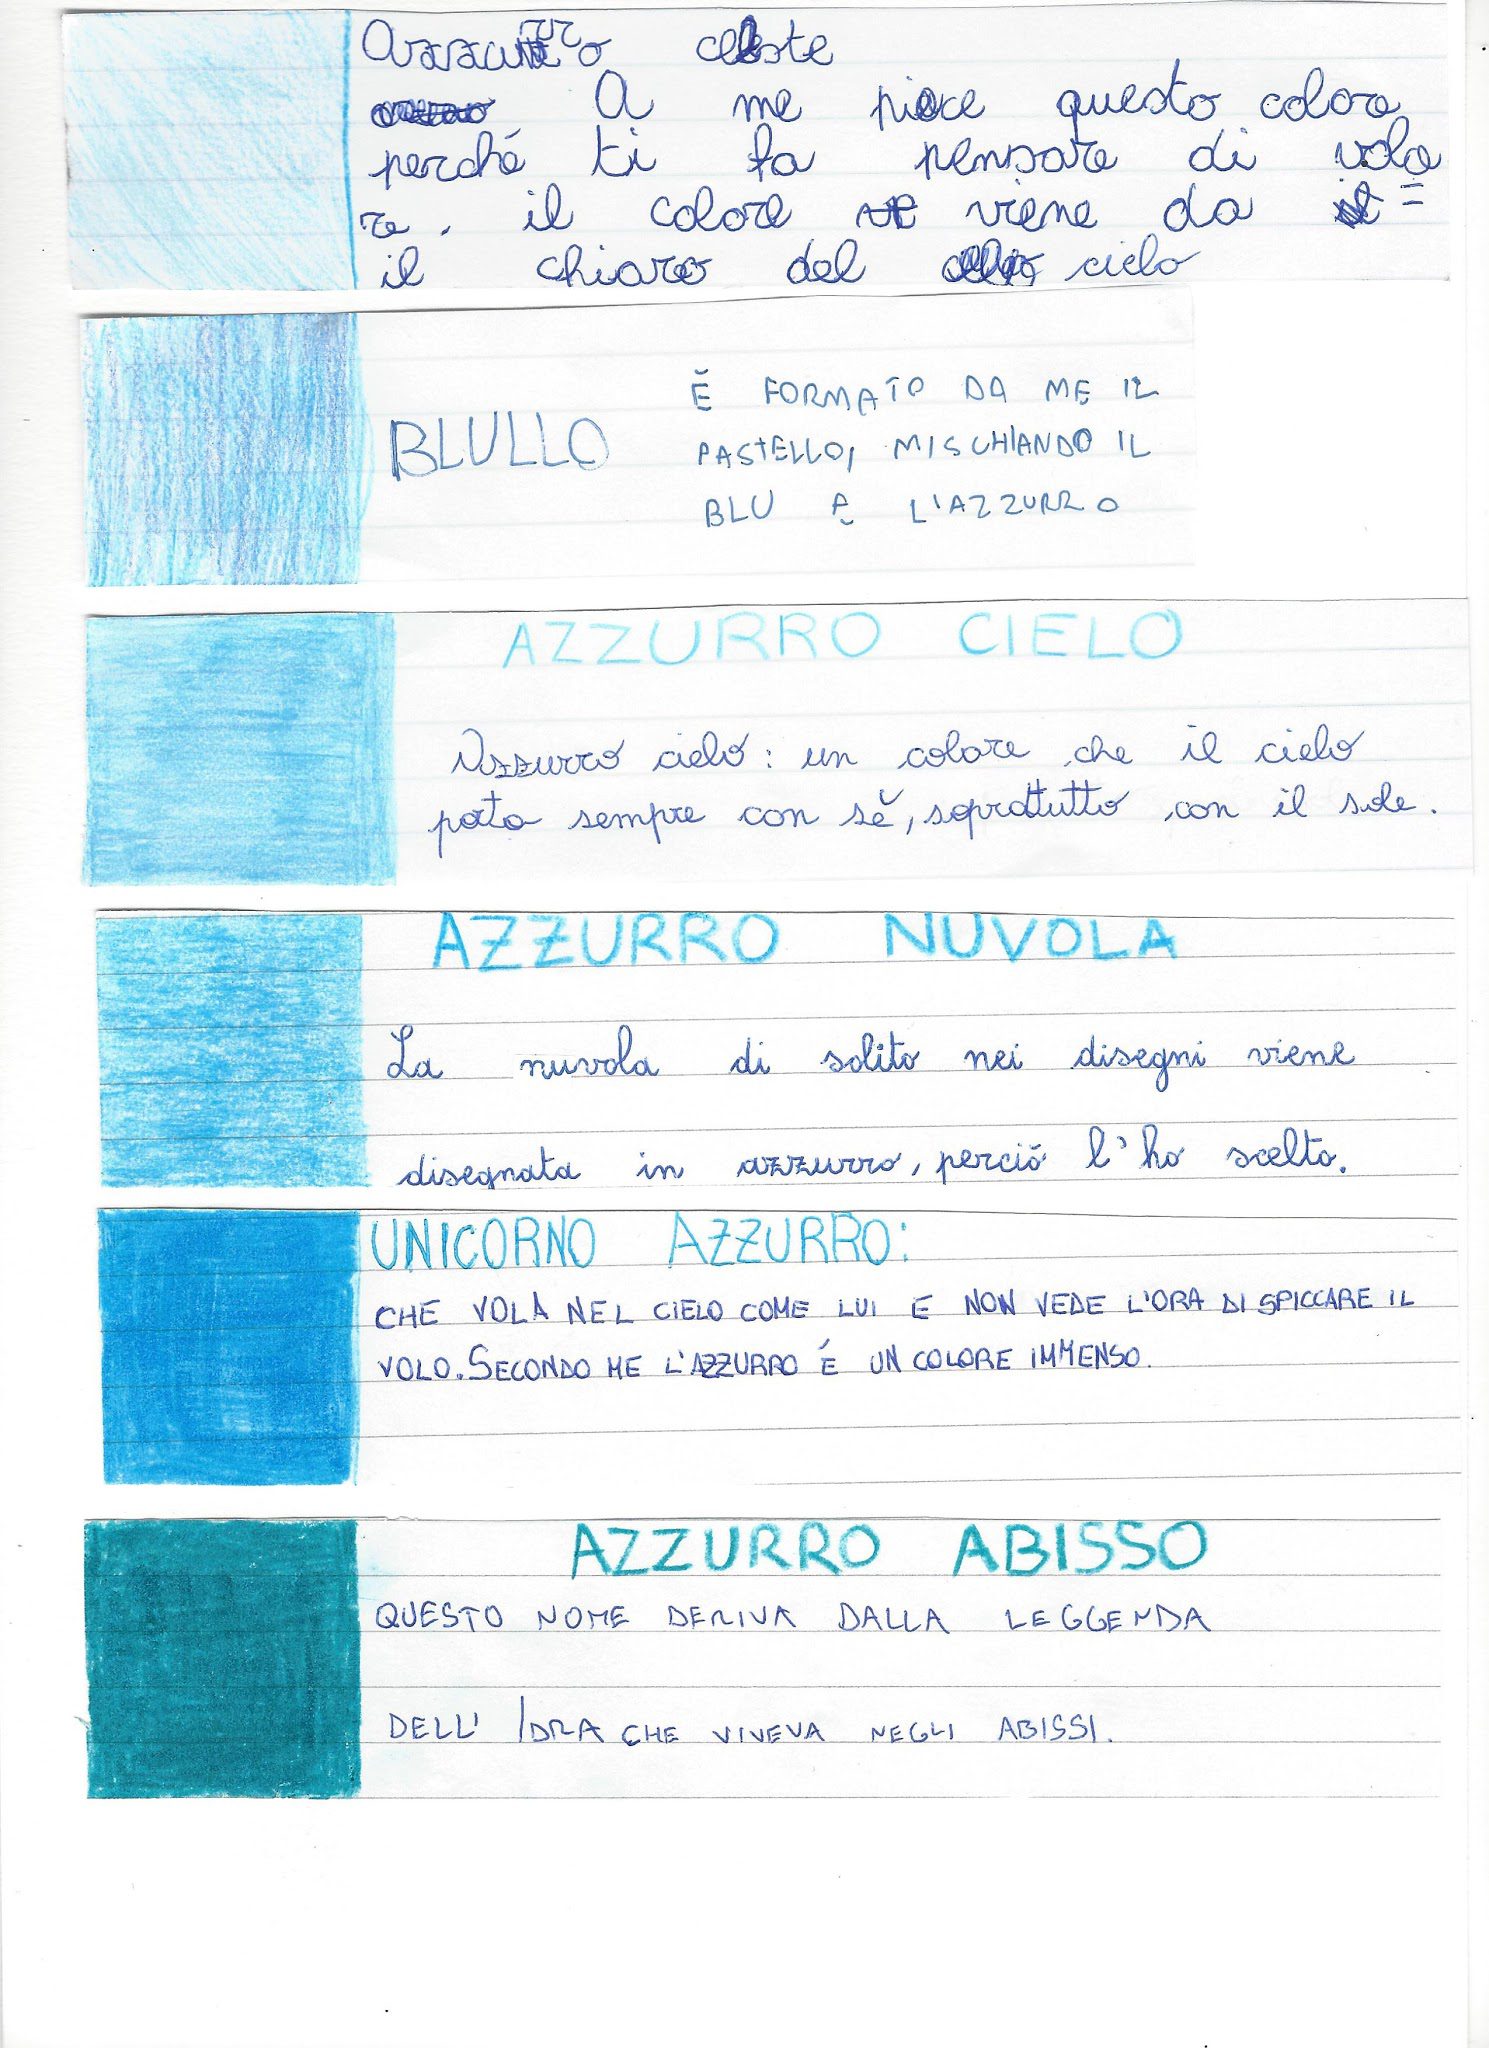 Azzurro celeste
A me piace questo colore
perché ti fa pensare di vola
re. il colore viene da =
il chiaro del cielo
BLULLO
È FORMATO DA ME IL
PASTELLO, MISCHIANDO IL
BLU E L'AZZURRO
AZZURRO CIELO
Azzurro cielo: un colore che il cielo
porta sempre con sè, soprattutto con il sole.
AZZURRO NUVOLA
La nuvola di solito nei disegni viene
disegnata in azzurro, perciò l'ho scelto.
UNICORNO AZZURRO:
CHE VOLA NEL CIELO COME LUI E NON VEDE L'ORA DI SPICCARE IL
VOLO. SECONDO ME L'AZZURRO É UN COLORE IMMENSO.
AZZURRO ABISSO
QUESTO NOME DERIVA DALLA LEGGENDA
DELL' IDRA CHE VIVEVA NEGLI ABISSI.